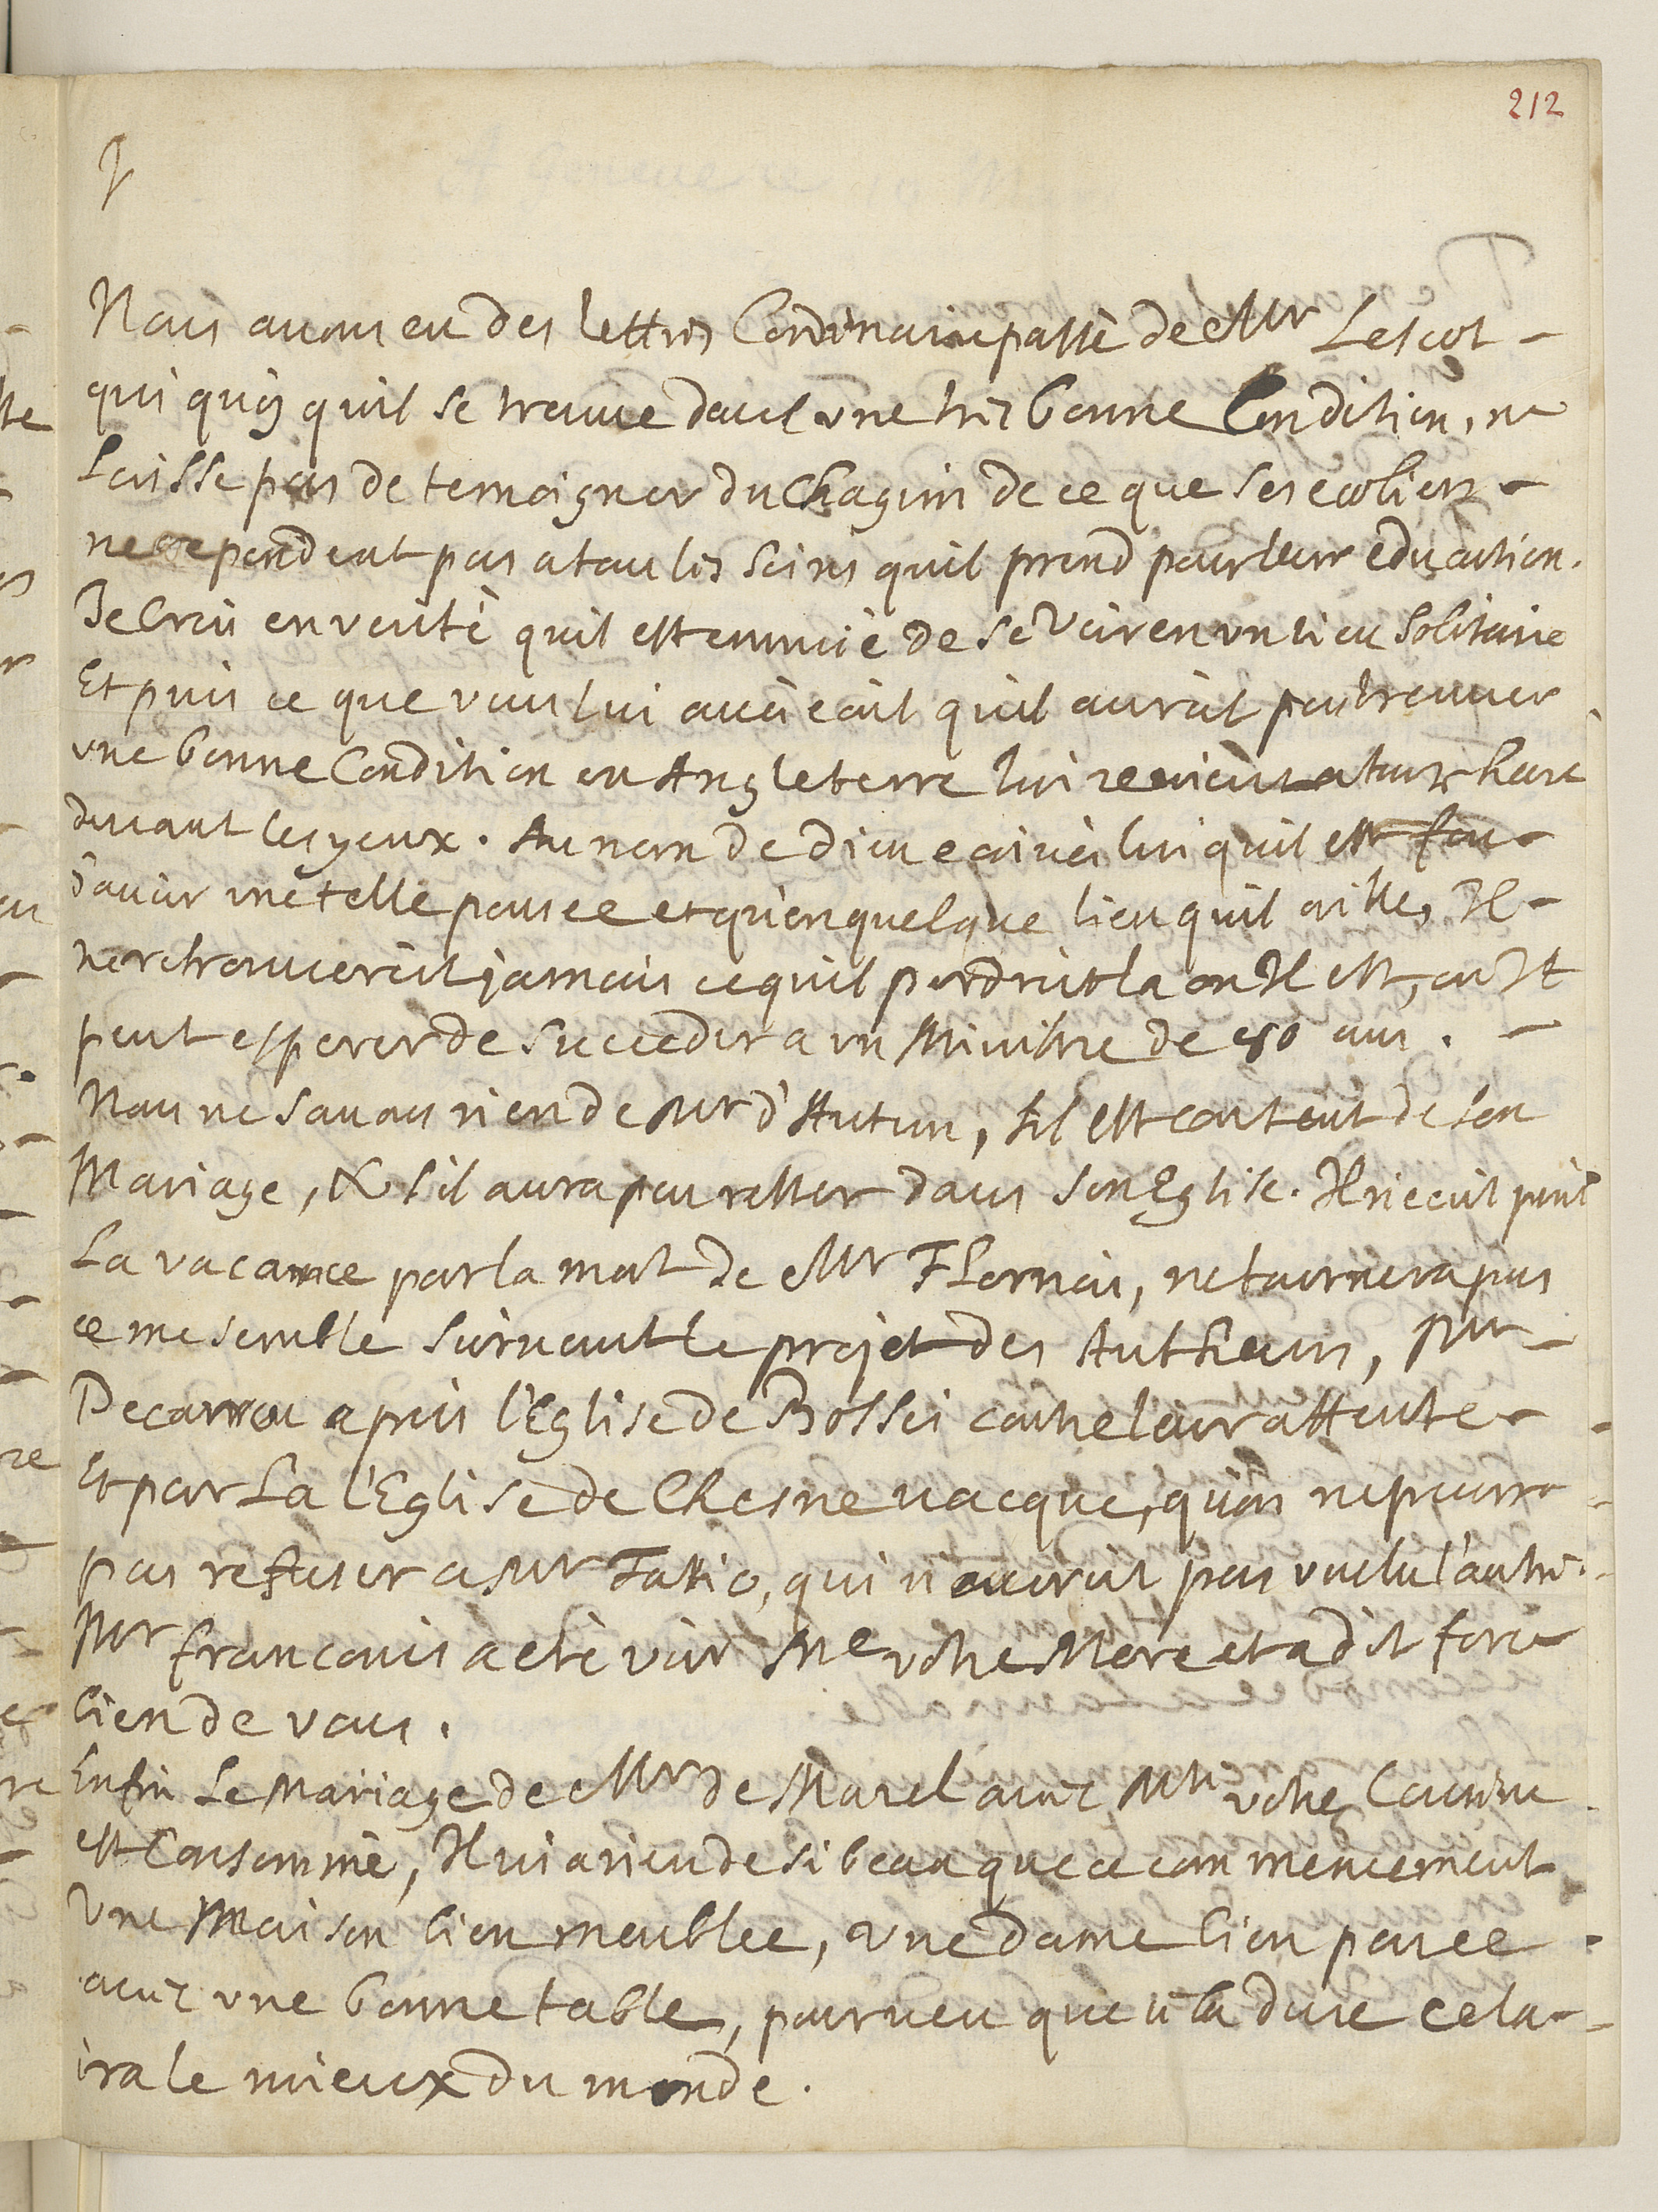 212
Nous avons eu des lettres l'ordinaire passé de Mr Lescot
qui quoy quil se trouve dans une tres bonne Condition, ne
laisse pas de temoigner du chagrin de ce que ses ecoliers
ne repondent pas a tou les soins quil prend pour leur education.
Je Croi en verité quil est ennuié de se voir en un lieu solitaire
Et puis ce que vous lui avéz ecrit quil auroit peu trouver
une bonne Condition en Angleterre lui revient a toute heure
devant les yeux. Au nom de dieu ecrivéz lui quil est fou
d'avoir une telle pensee et qu'en quelque lieu quil aille, Il
ne retrouveroit jamais ce quil perdroit la ou Il est, ou Il
peut esperer de succeder a un Ministre de 80 ans.
Nous ne savons rien de Mr d'Autun, sil est content de son
Mariage, & s'il aura peu rester dans son Eglise. Il n'ecrit point
La vacance par la mort de Mr Flornoi, ne tournera pas
ce me semble suivant le projet des Autheurs, Mr
Decarrou a pris l'Eglise de Bossei contre leur attente
Et par la l'Eglise de Chesne vacque, qu'on ne pourra
pas refuser a Mr Fatio, qui n'auroit pas voulu l'autre.
Mr francouis a eté voir Me votre Mere et a dit force
bien de vous.
Enfin Le Mariage de Mr de Marel avec Mlle votre Cousine
est Consommé, Il ni a rien de si beau que ce commencement
Une Maison bien meublee, une dame bien paree
avec une bonne table, pourveu que cela dure cela
ira le mieux du monde.